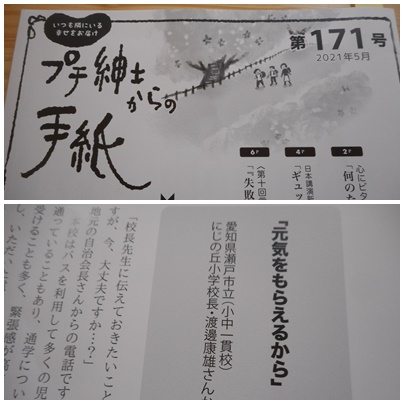 いつも隣にいる
幸せをお届け
プチ紳士
からの
手紙
第171号
2021年5月
2P
心にピタ
「何のた
4P
日本講演新
「ギュッ
6P
〈第十回
「『失敗
『元気をもらえるから』
愛知県瀬戸市立(小中一貫校)
にじの丘小学校長・渡邊康雄さんか
「校長先生に伝えておきたいこと
すが、今、大丈夫ですか…？」
地元の自治会長さんからの電話です
本校はバスを利用して多くの児
通っていることもあり、通学につい
受けることも多く、緊張感が高